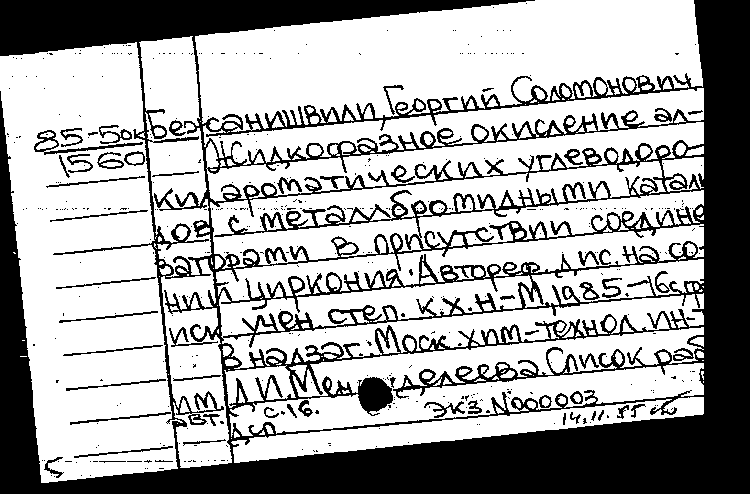 85-5ок Бежанишвили, Георгий Соломонович
1560 Жидкофазное окисление ал-
килароматических углеводоро-
дов с металлбромидными катали
заторами в присутствии соедине
ний циркония: Автореф. дис. на со-
иск. учен. степ. к.х.н.-М, 1985.-16с, гр
В надзаг.: Моск. хим.-технол. ин-т
им. Д.И. Менделеева. Список раб
авт. с. 16. Экз. N000003
дсп. 14.11.85